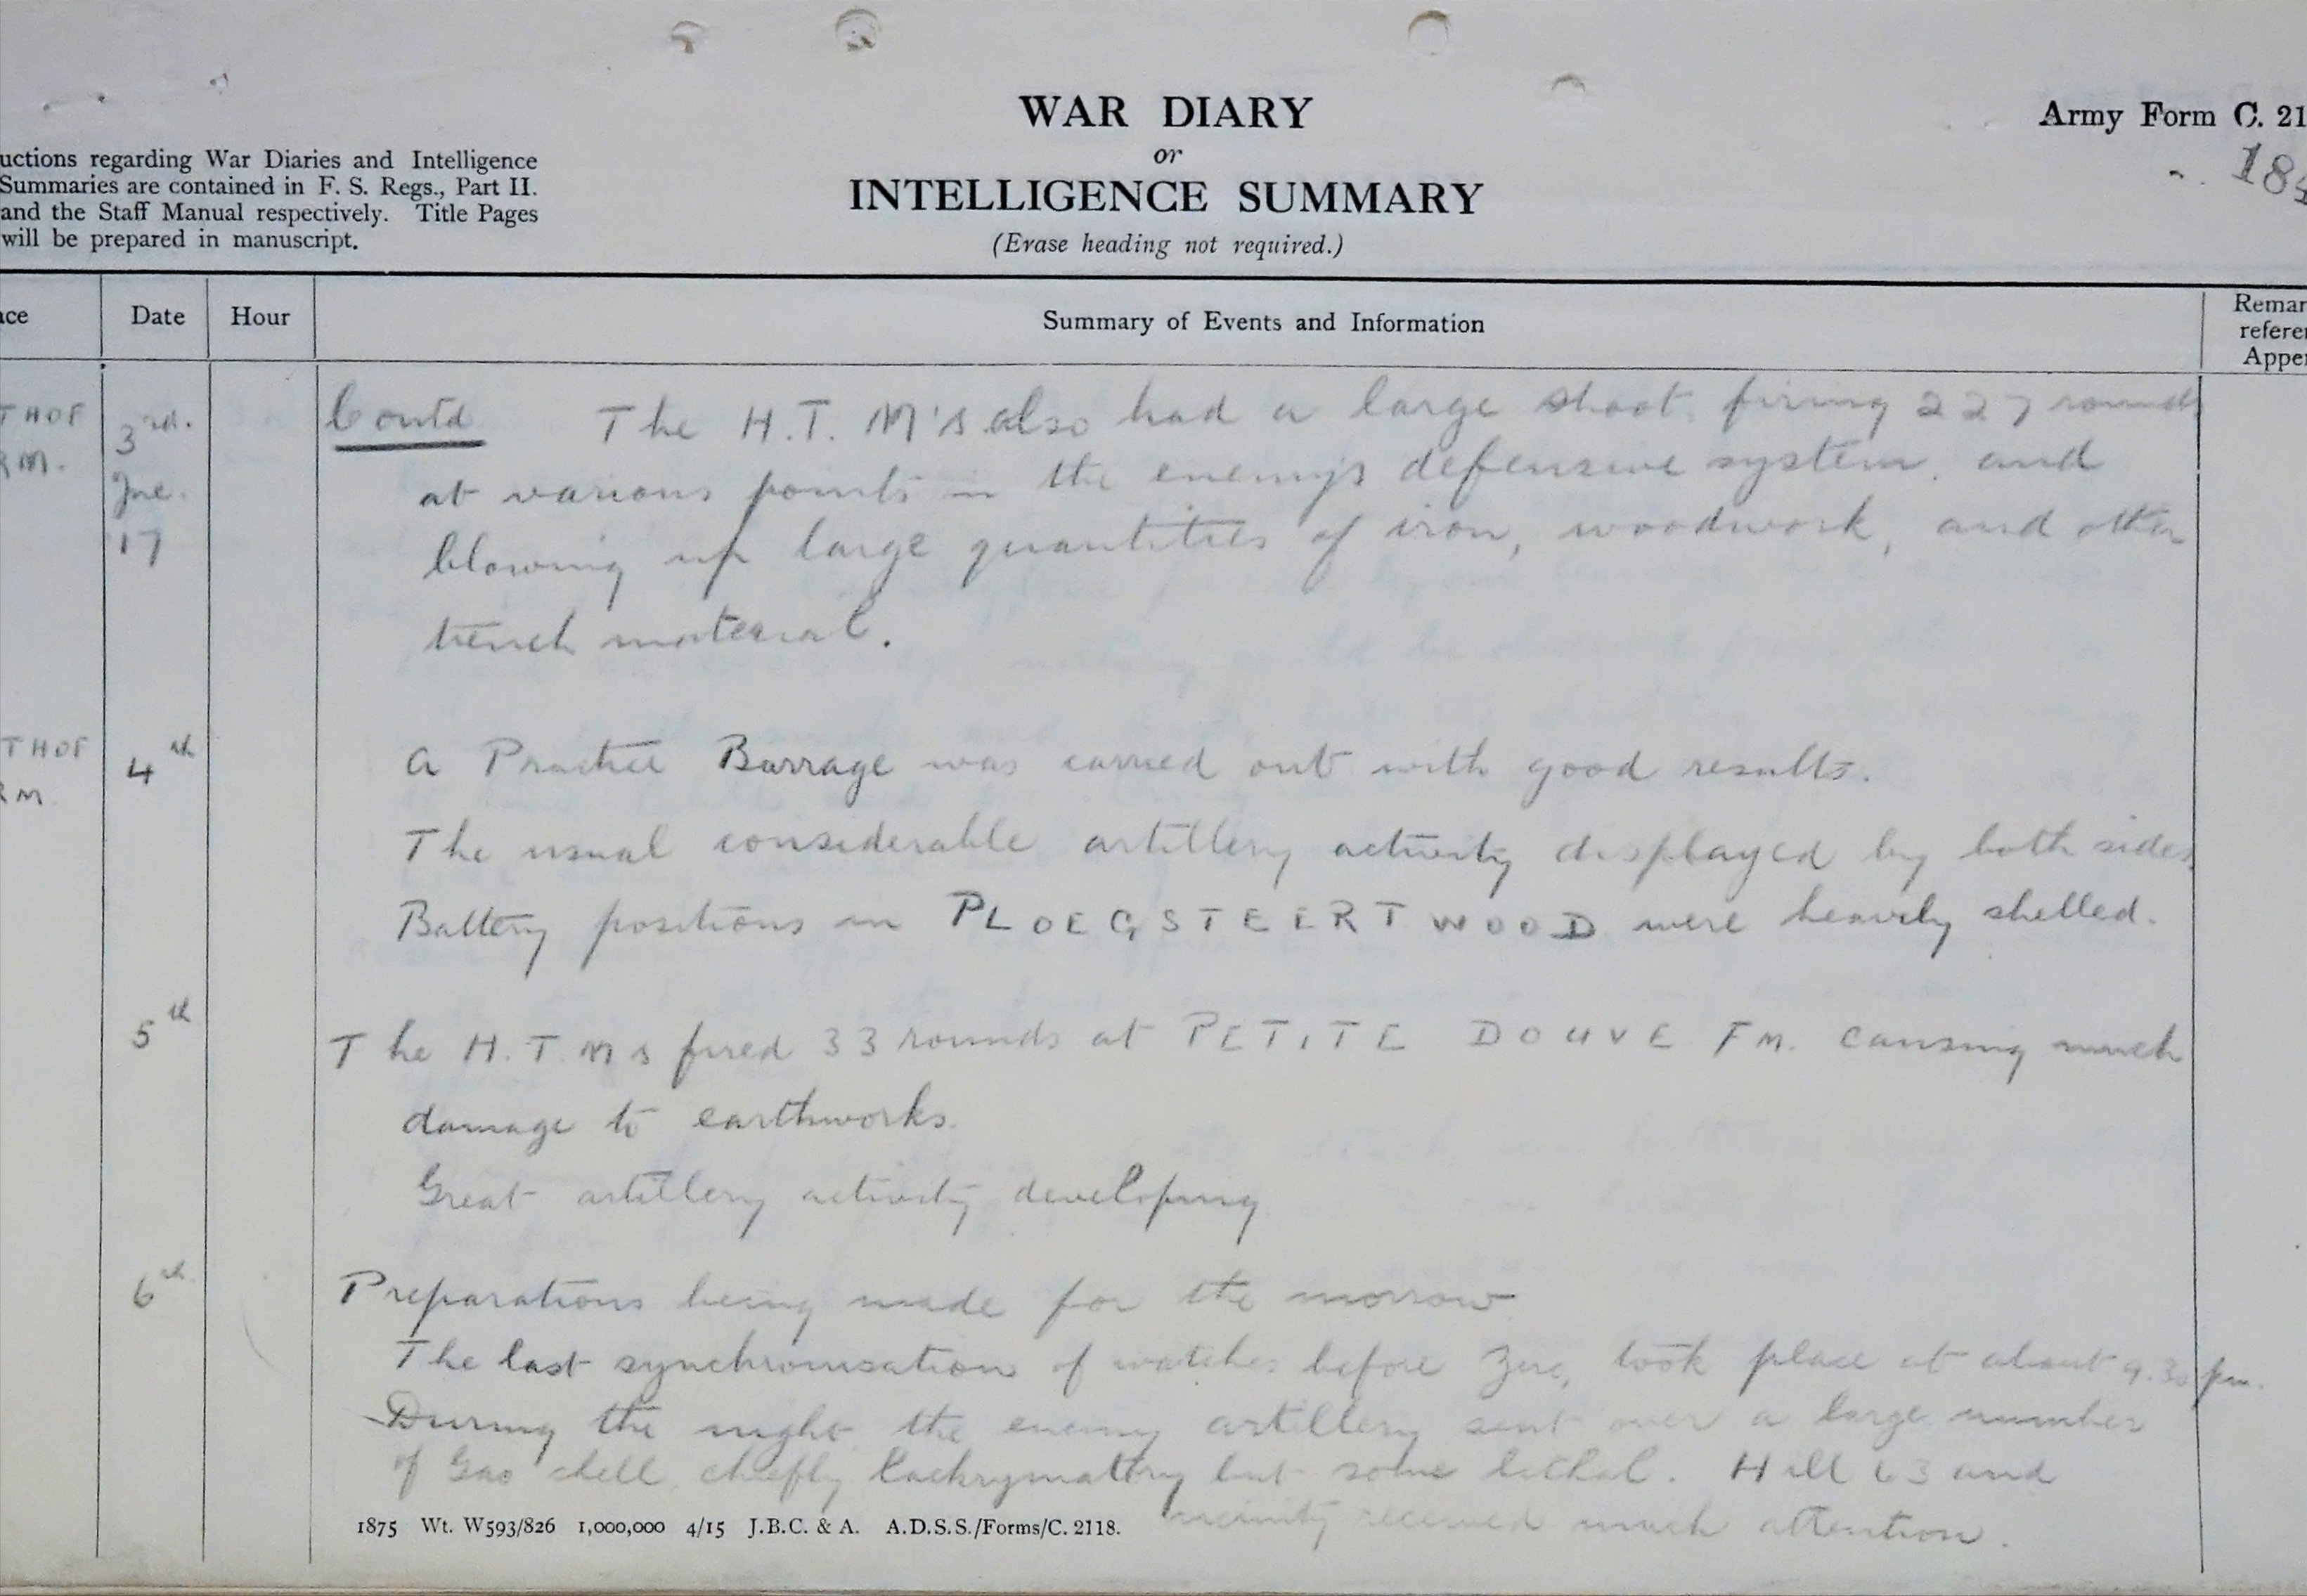 WAR DIARY
or
INTELLIGENCE SUMMARY
(Erase heading not required.)
Army Form C. 21
18
uctions regarding War Diaries and Intelligence
Summaries are contained in F. S. Regs., Part II.
and the Staff Manual respectively. Title Pages
will be prepared in manuscript.
ce
Date
Hour
Summary of Events and Information
Remar
refere
Appe
THOF
RM.
3rd.
Jne.
17
Contd The H.T. M's also had a large shoot firing 227 rounds
at various points in the enemy's defensive system, and
blowing up large quantities of iron, woodwork, and other
trench material.
THOF
RM.
4th
A Practice Barrage was carried out with good results.
The usual considerable artillery activity displayed by both sides,
Battery positions in PLOEGSTEERT WOOD were heavily shelled.
5th
The H.T.Ms fired 33 rounds at PETITE DOUVE FM. causing much
damage to earthworks.
Great artillery activity developing
6th
Preparations being made for the morrow
The last synchronisation of watches before Zero, took place at about 9.30 pm.
During the night the enemy artillery sent over a large number
of Gas shell, chiefly lachrymatory but some lethal. Hill 63 and
vicinity received much attention.
1875 Wt. W593/826 1,000,000 4/15 J.B.C. & A. A.D.S.S./Forms/C. 2118.